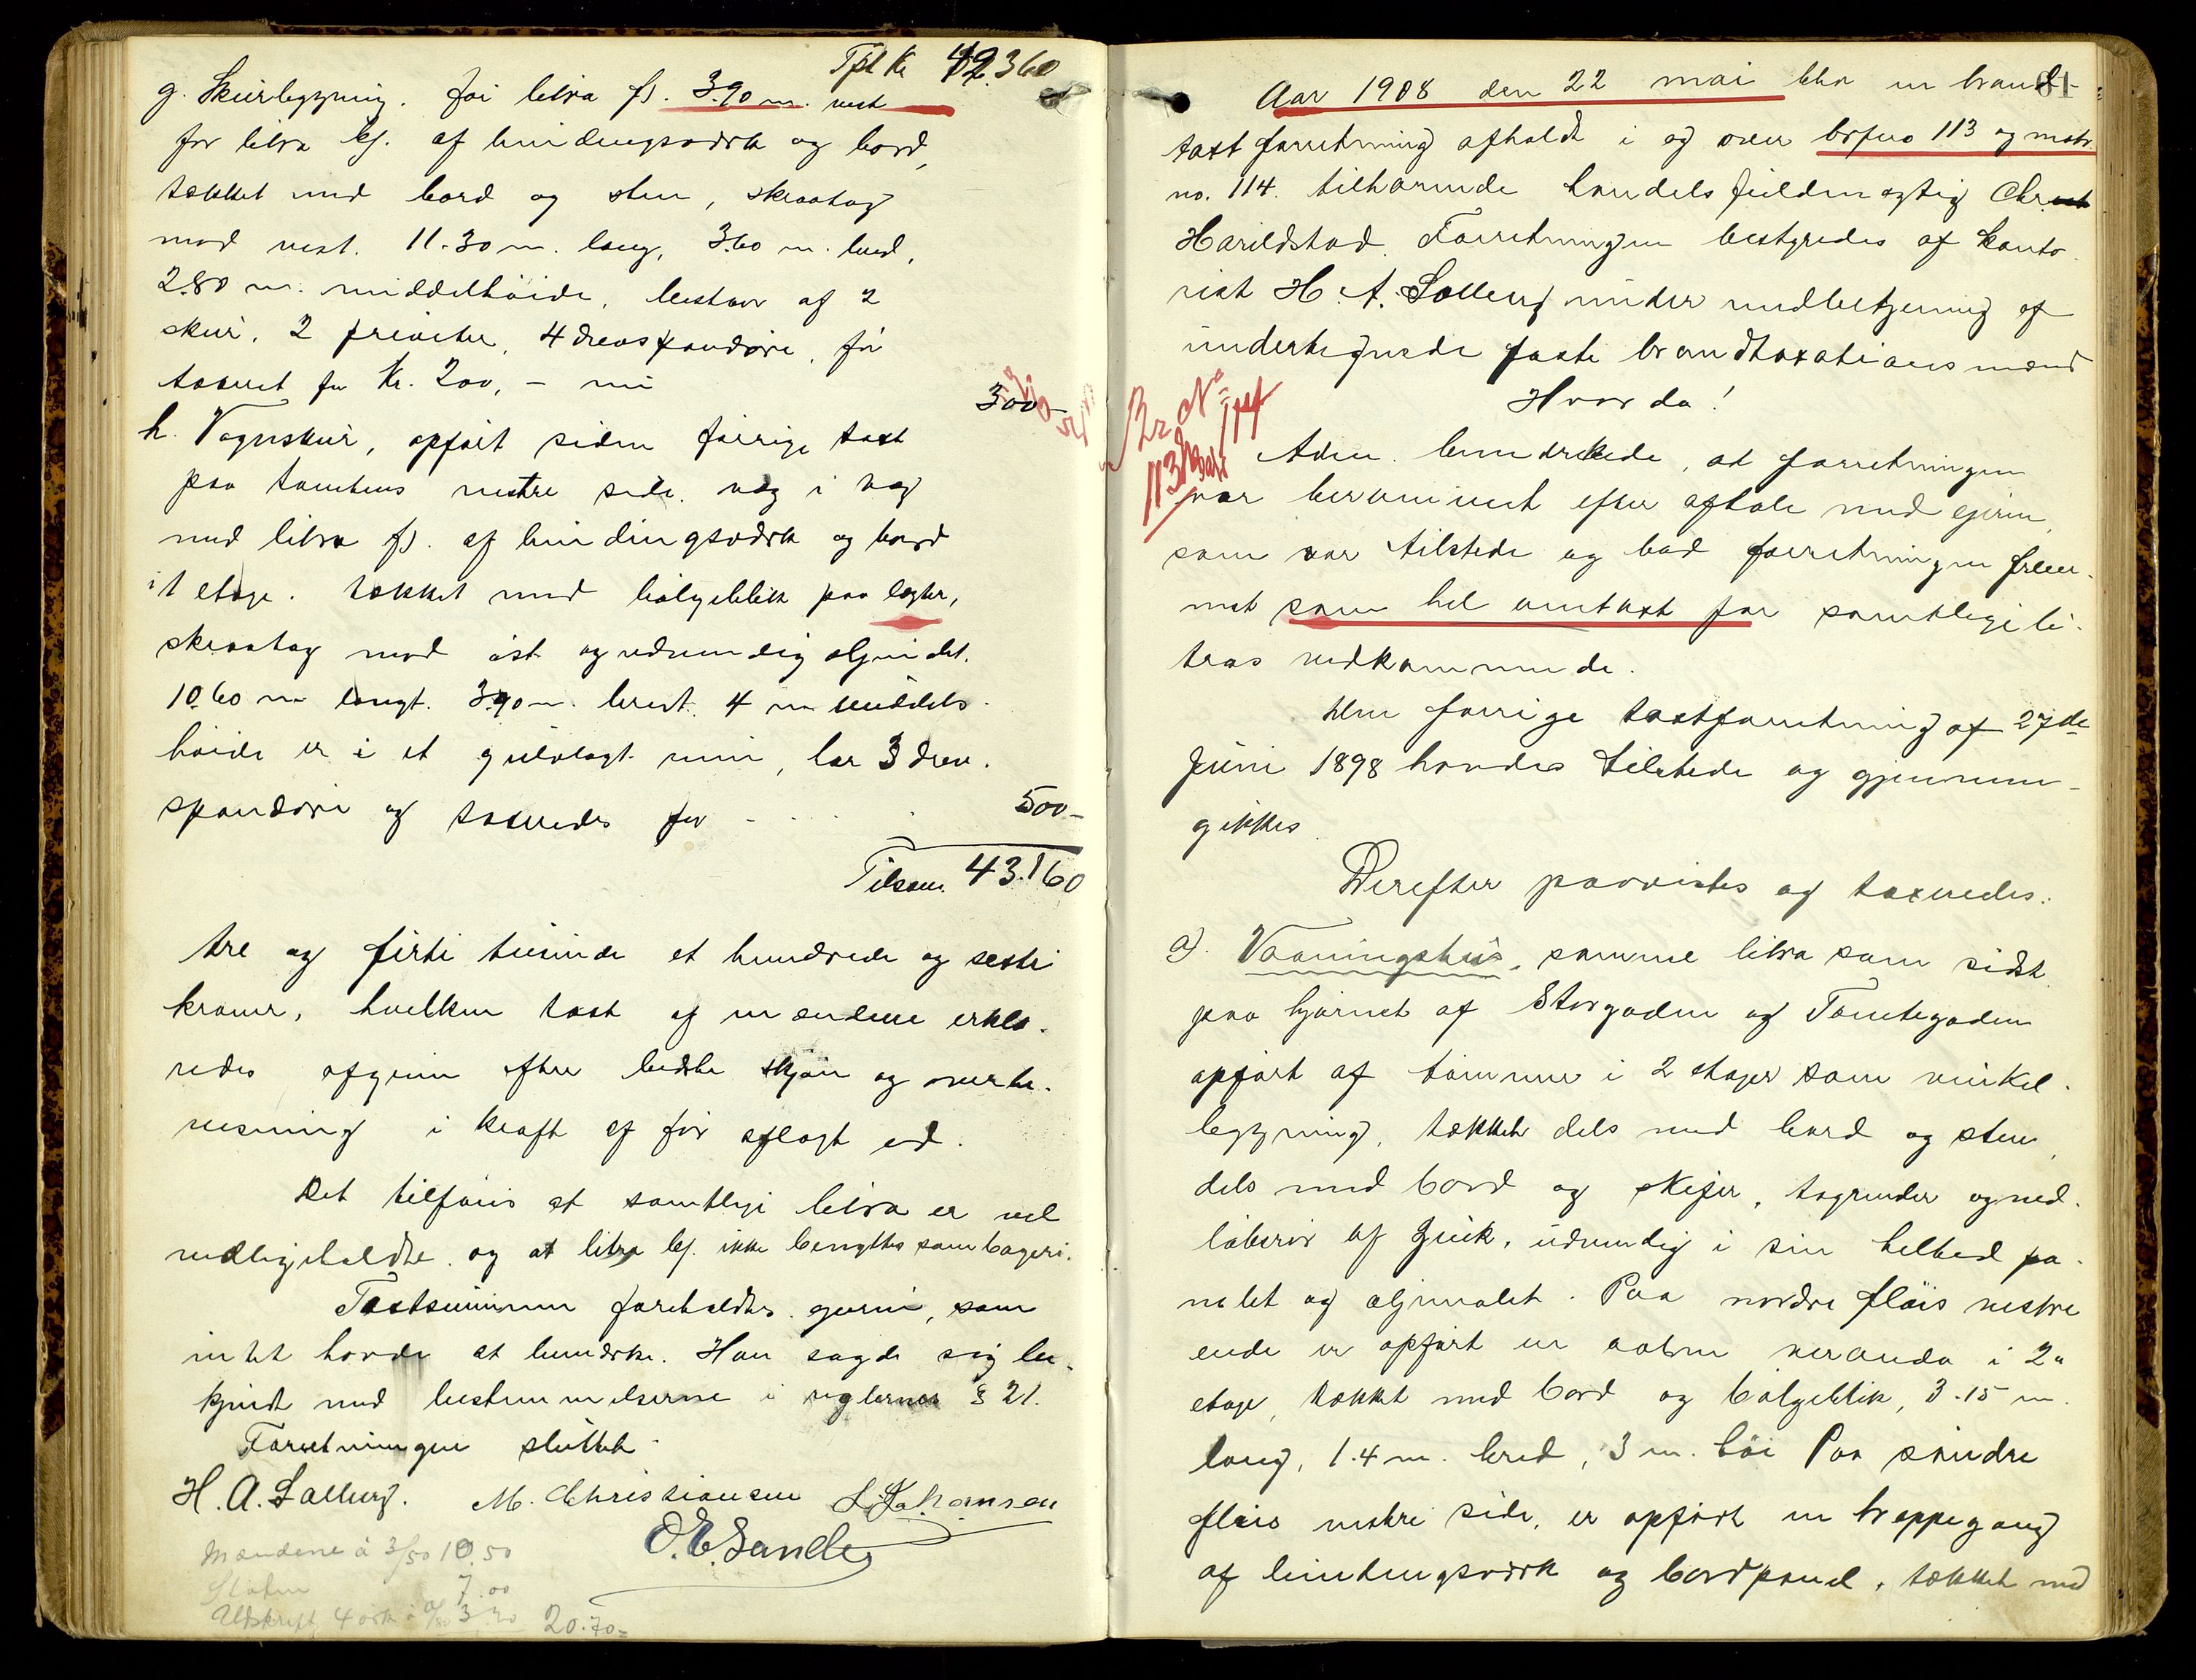 Tpt Kr 42.360
g. Skurbygning. før litra f). 3.90 m. vest
for litra b). af bindingsværk og bord,
tækket med bord og sten, skraatag
mod vest. 11.30 m. lang, 3.60 m. bred,
2.80 m. middelhøide, bestaar af 2
skur, 2 priveter, 4 drevspanddøre, før
taxeret for Kr. 200,- nu
300-
h. Vognskur, opført siden forrige taxt
paa tomtens vestre side. væg i væg
med litra f). af bindingsværk og bord
i 1 etage. tækket med bølgeblik paa lægter,
skraatag mod øst og udvendig oljemalet.
10.60 m langt. 3.90 m. bredt. 4 m middels
høide er i et gulvlagt rum, har 3 drev.
spanddøre og taxeredes for - . . . 500-
Tilsam. 43.160
tre og firti tusinde et hundrede og sexti
kroner, hvilken taxt af mændene erklæ-
redes afgiven efter bedste skjøn og overbe-
visning i kraft af før aflagt ed.
Det tilføies at samtlige litra er vel
vedligeholdte og at litra b). ikke benyttes som bageri.
Taxtsummen foreholdtes eieren, som
intet havde at bemærke. Han sagde sig be-
kjendt med bestemmelserne i reglernes § 21.
Forretningen sluttet.
H. A. Solberg. M. Christiansen L. Johansen
O. E. Sande
Mændene à 3/50 10.50
7.00
Udskrift 4 ark à 0/80 3.20 20.70=
Aar 1908 den 22 mai blev en brand-
81
taxtforretning afholdt i og over brfno 113 og matr.
no. 114. tilhørende handelsfuldmægtig Chr.
Harildstad. Forretningen bestyredes af konto-
rist H. A. Solberg under medbetjening af
undertegnede faste brandtaxationsmænd
Hvor da!
Br No
113
Adm. bemærkede, at forretningen
var berammet efter aftale med eieren,
som var tilstede og bad forretningen frem-
met som hel omtaxt for samtlige li-
tras vedkommende.
Den forrige taxtforretning af 27de
Juni 1898 havdes tilstede og gjennem-
gikkes.
Derefter paavistes og taxeredes:
a). Vaaningshus, samme litra som sidst
paa hjørnet af Storgaden og Tomtegaden
opført af tømmer i 2 etager som vinkel-
bygning, tækket dels med bord og sten,
dels med bord og skifer, tagrender og ned-
løbsrør af zink, udvendig i sin helhed pa-
nelet og oljemalet. Paa nordre fløis vestre
ende er opført en aaben veranda i 2
etage, tækket med bord og bølgeblik, 3.15 m.
lang, 1.4 m. bred, 3 m. høi Paa søndre
fløis vestre side, er opført en trappegang
af bindingsværk og bordpanel, tækket med